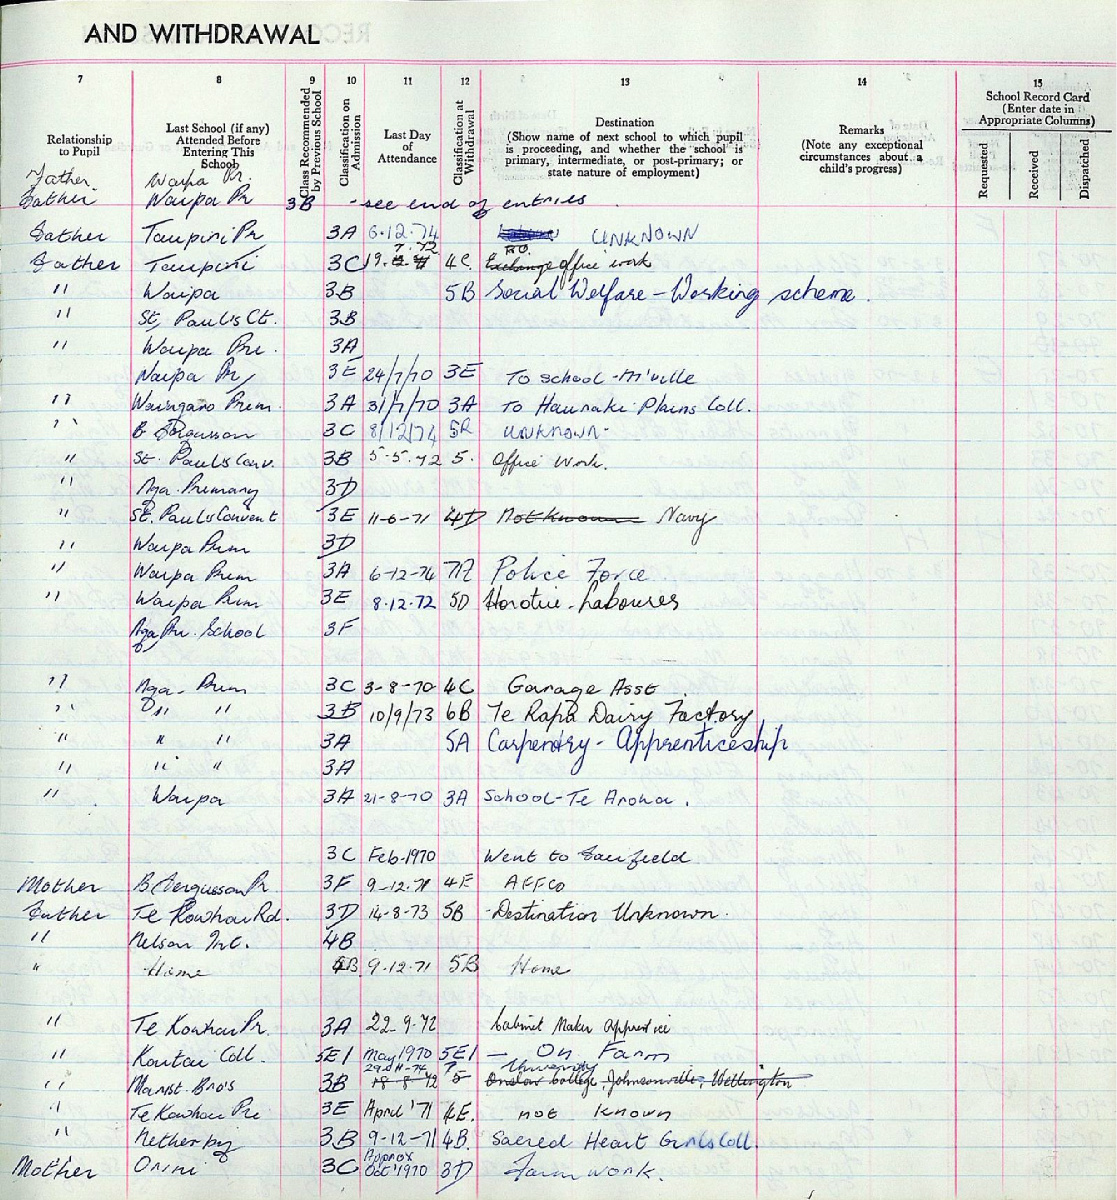 AND WITHDRAWAL
7 8 9 10 11 12 13 14 15
Relationship to Pupil
Last School (if any) Attended Before Entering This School
Class Recommended by Previous School
Classification on Admission
Last Day of Attendance
Classification at Withdrawal
Destination (Show name of next school to which pupil is proceeding, and whether the school is primary, intermediate, or post-primary; or state nature of employment)
Remarks (Note any exceptional circumstances about a child's progress)
School Record Card (Enter date in Appropriate Columns)
Requested Received Dispatched
Father Waipa Pr.
Father Waipa Pr 3B - see end of entries
Father Taupiri Pr 3A 6-12-74 UNKNOWN
Father Taupiri 3C 19. 7. 72 4C P.O. Exchange office work
" Waipa 3B 5B Social Welfare - Working scheme.
" St. Paul's Ct. 3B
" Waipa Pri. 3A
Waipa Pr 3E 24/7/70 3E To school - M'ville
" Waingaro Prim. 3A 31/7/70 3A To Hauraki Plains Coll.
" B Fergusson 3C 8/12/74 5R UNKNOWN-
" St. Paul's Conv. 3B 5-5-72 5. Office Work.
" Nga. Primary 3D
" St. Paul's Convent 3E 11-6-71 4D Not known Navy
" Waipa Prim 3D
" Waipa Prim 3A 6-12-74 7A Police Force
" Waipa Prim 3E 8-12-72 5D Horotiu - Labourer
Nga Pri. School 3F
" Nga- Prim 3C 3-8-70 4C Garage Asst.
" " " 3B 10/9/73 6B Te Rapa Dairy Factory
" " " 3A 5A Carpentry - Apprenticeship
" " " 3A
" Waipa 3A 21-8-70 3A School - Te Aroha.
3C Feb-1970 Went to Fairfield
Mother B Fergusson Pr. 3F 9-12-71 4E AFFCO
Father Te Kowhai Rd. 3D 14-8-73 5B - Destination Unknown.
" Nelson Int. 4B
" Home 4B 9-12-71 5B Home
" Te Kowhai Pr. 3A 22-9-72 Cabinet Maker Apprentice
" Kaitai Coll. 5E1 May 1970 5E1 - On Farm
" Marist. Bro's 3B 18-8-72 5 7 University Onslow College, Johnsonville, Wellington
" Te Kowhai Pri 3E April '71 4E. not known
" Netherby 3B 9-12-71 4B. Sacred Heart Girls Coll.
Mother Orini 3C Approx Oct' 1970 3D Farm work.